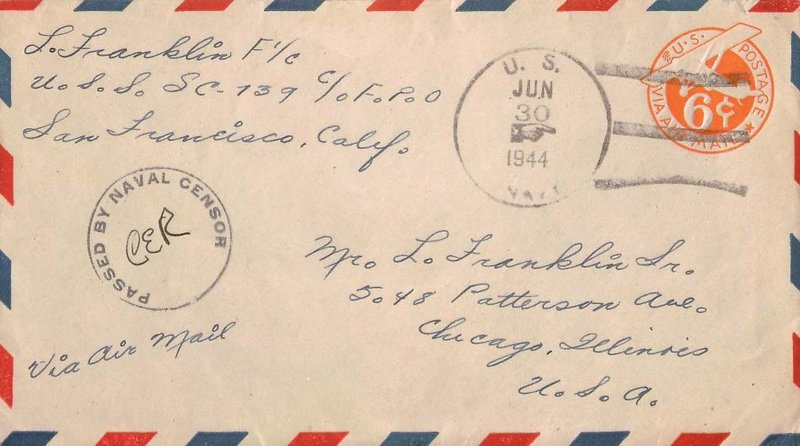 L. Franklin F 1/c
U.S.S. SC-739 C/o F.P.O
San Francisco, Calif.
U. S.
JUN
30
1944
NAVY
U.S. POSTAGE
6¢
VIA AIR MAIL
PASSED BY NAVAL CENSOR
CER
Mr. L. Franklin Sr.
5048 Patterson Ave.
Chicago, Illinois
U.S.A.
Via Air Mail